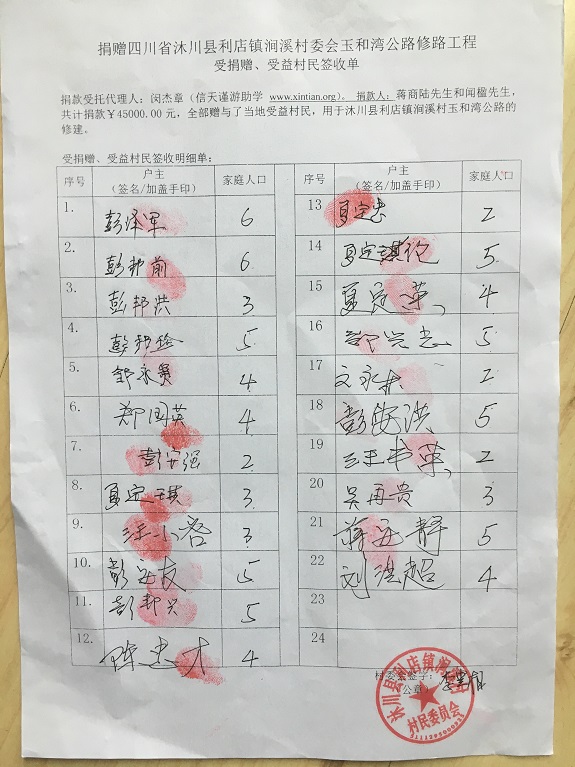 捐赠四川省沐川县利店镇涧溪村委会玉和湾公路修路工程
受捐赠、受益村民签收单
捐款受托代理人：闵杰章（信天谨游助学 www.xintian.org）。捐款人：蒋商陆先生和闻楹先生，
共计捐款￥45000.00 元，全部赠与了当地受益村民，用于沐川县利店镇涧溪村玉和湾公路的
修建。
受捐赠、受益村民签收明细单：
序号 户主（签名/加盖手印） 家庭人口
1. 彭泽军 6
2. 彭邦前 6
3. 彭邦洪 3
4. 彭邦 5
5. 邹永贵 4
6. 郑国英 4
7. 彭安强 2
8. 夏定琪 3
9. 小容 3
10. 彭友 5
11. 彭邦兴 5
12. 陈忠才 4
序号 户主（签名/加盖手印） 家庭人口
13 夏定忠 2
14 夏定伦 5
15 夏定荣 4
16 邹兴志 5
17 文永 2
18 彭安洪 5
19 2
20 吴再贵 3
21 蒋静 5
22 刘洪超 4
23
24
村委会签字：
（公章）
沐川县利店镇涧溪村
村民委员会